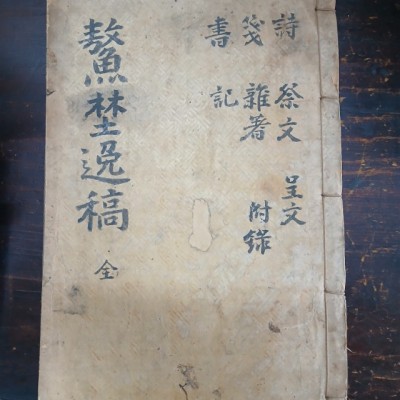 詩 祭文 呈文
箋 雜著 附錄
書 記
鰲埜逸稿 全